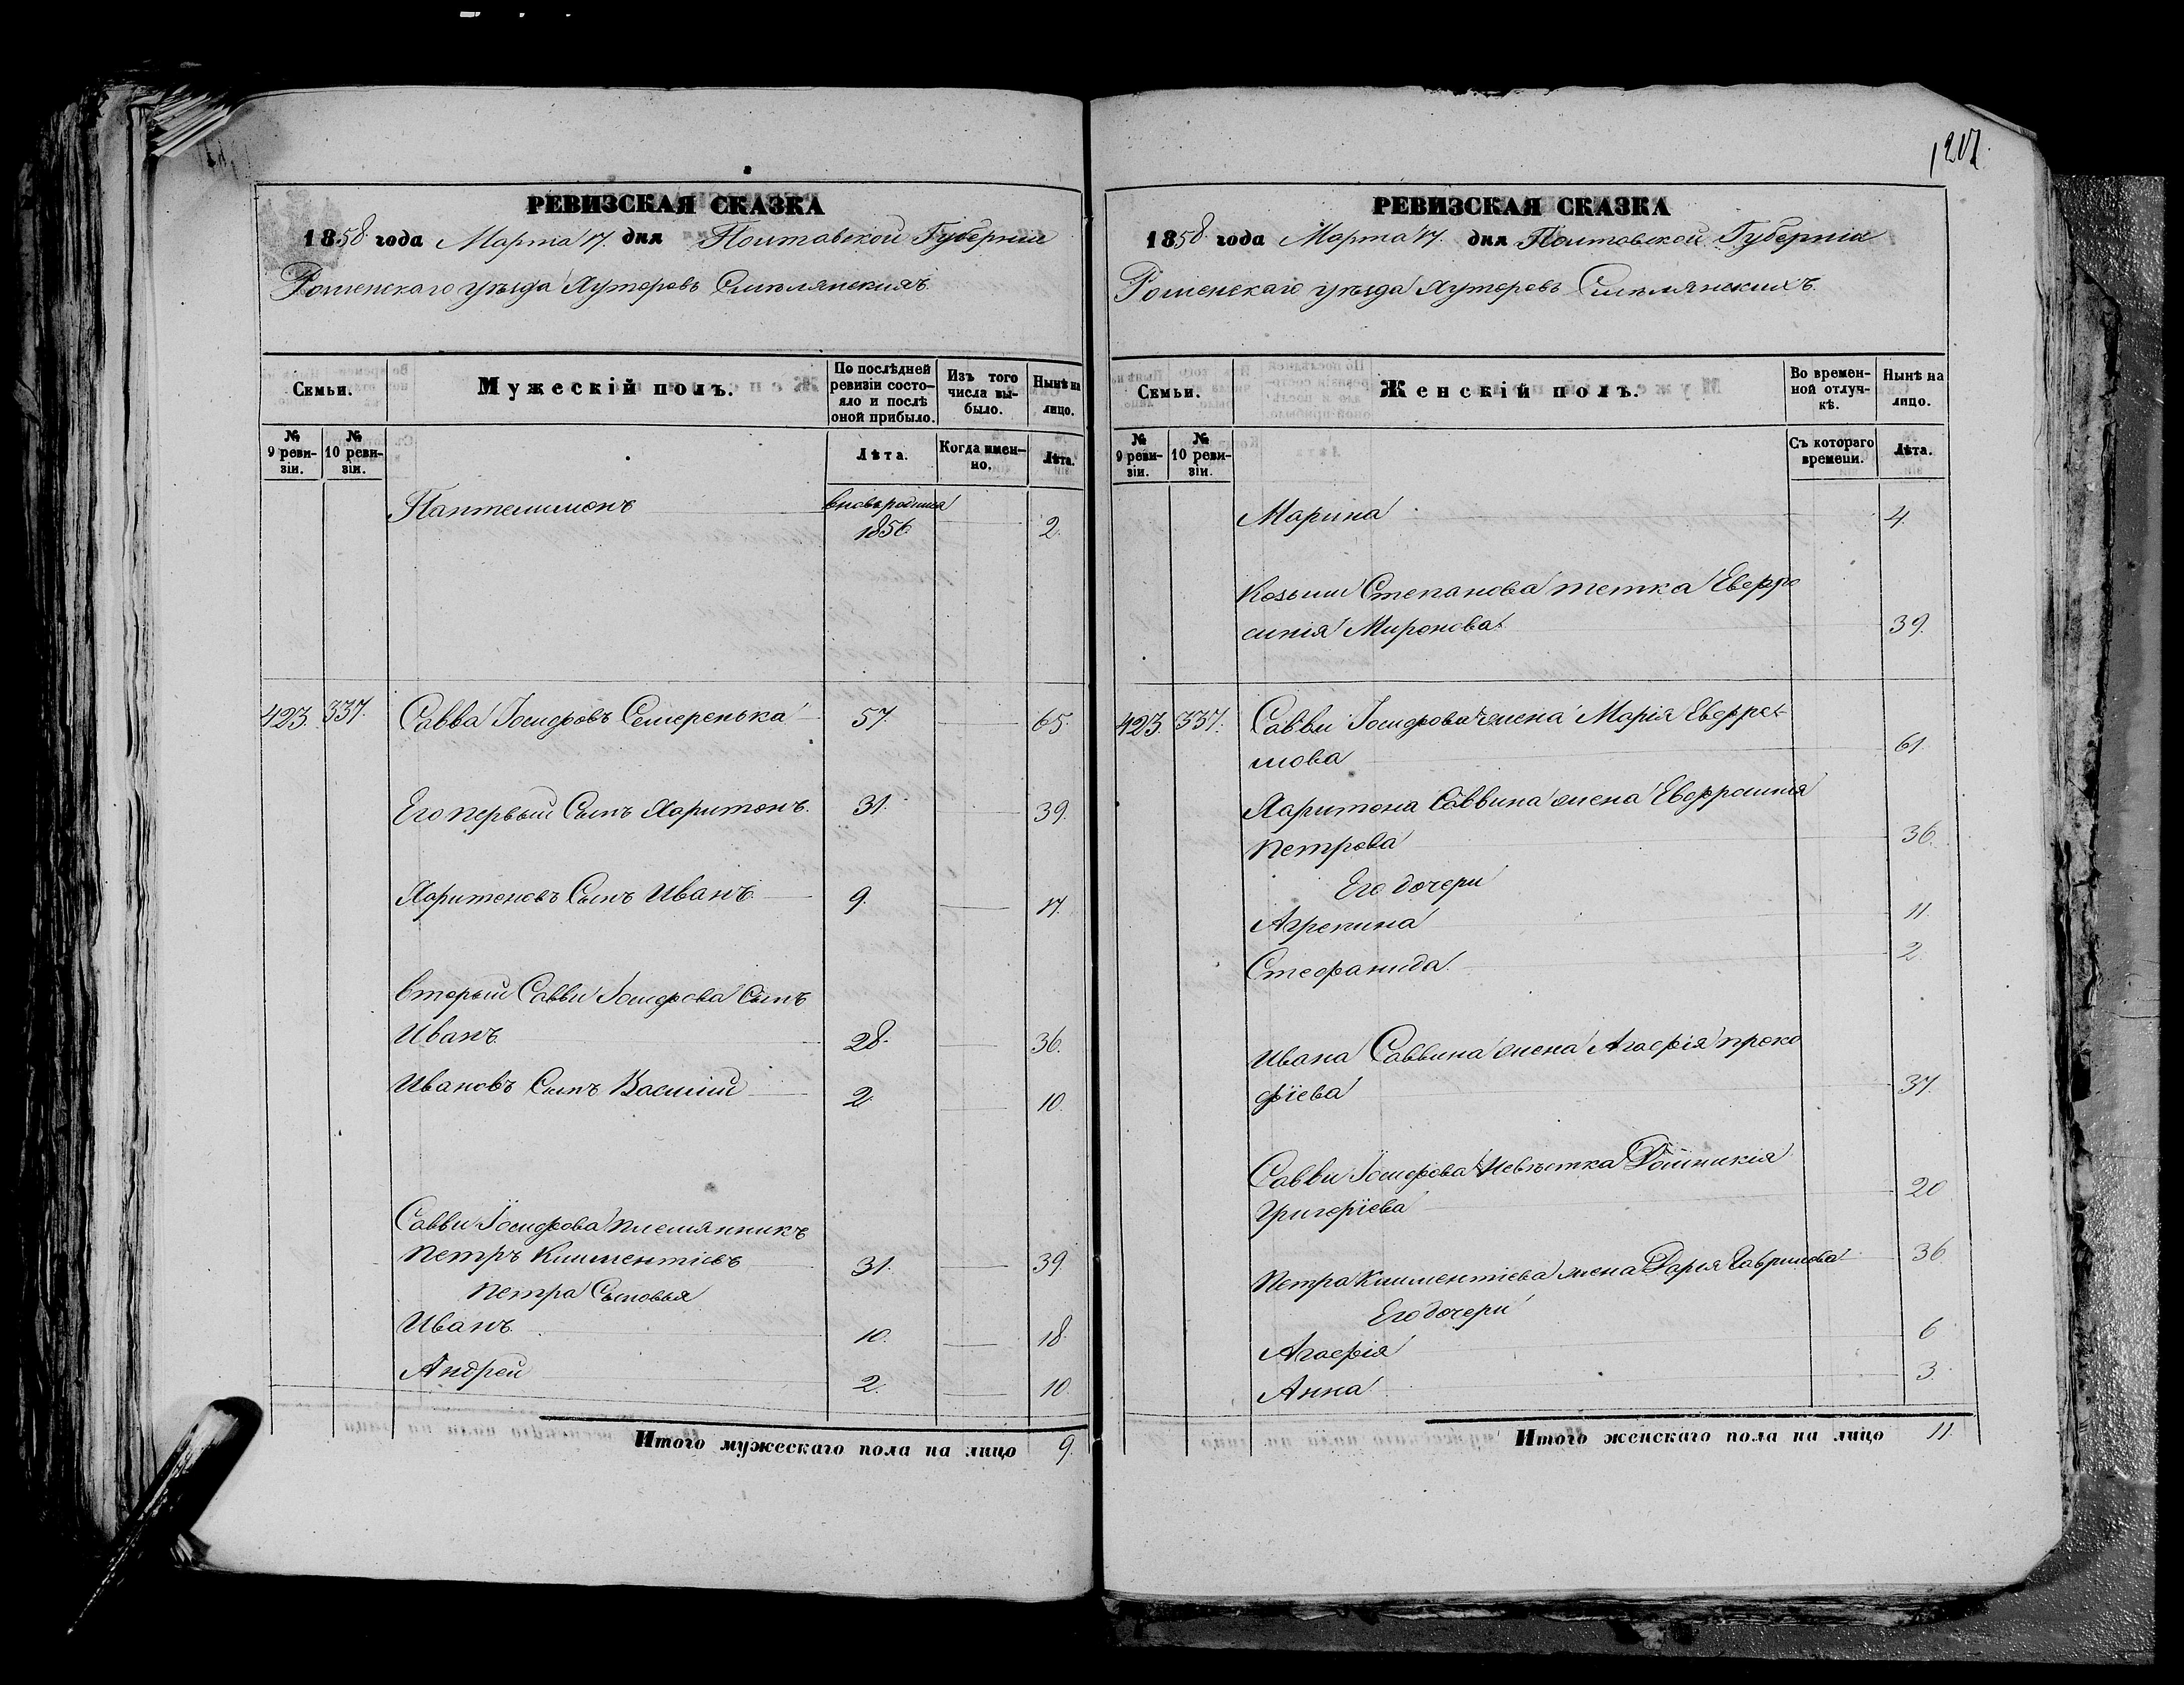 1207.
РЕВИЗСКАЯ СКАЗКА
1858 года Марта 17. дня Полтавской Губерніи
Роменскаго уѣзда Хуторовъ Смѣлянскихъ
Семьи.
Мужескій полъ.
По послѣдней ревизіи состо-
яло и послѣ оной прибыло.
Изъ того числа вы-
было.
Нынѣ на лицо.
№ 9 реви-
зіи.
№ 10 реви-
зіи.
Лѣта.
Когда имен-
но.
Лѣта.
Пантелимонъ вновьродился 1856. 2.
423. 337. Савва Іосифовъ Семеренька 57 65.
Его первый Сынъ Харитонъ. 31. 39.
Харитоновъ Сынъ Иванъ. 9. 17.
Вторый Саввы Іосифова Сынъ
Иванъ. 28. 36.
Ивановъ Сынъ Василій 2. 10.
Саввы Іосифова племянникъ
Петръ Климентіевъ 31. 39.
Петра Сыновья
Иванъ. 10. 18.
Андрей 2. 10.
Итого мужескаго пола на лицо 9.
РЕВИЗСКАЯ СКАЗКА
1858 года Марта 17. дня Полтавской Губерніи
Роменскаго уѣзда Хуторовъ Смѣлянскихъ.
Семьи.
Женскій полъ.
Во времен-
ной отлуч-
кѣ.
Нынѣ на лицо.
№ 9 реви-
зіи.
№ 10 реви-
зіи.
Съ котораго времени.
Лѣта.
Марина 4.
Козьмы Степанова тетка Евфро
синія Миронова 39.
423. 337. Саввы Іосифова жена Марія Евфре-
мова 61.
Харитона Саввина жена Евфросинія
Петрова 36.
Его дочери
Агрепина 11.
Стефанида. 2.
Ивана Саввина жена Агафія Проко
фіева 37.
Саввы Іосифова Невѣстка Домникія
Григоріева 20
Петра Климентіева жена Дарья Гаврилова 36
Его дочери
Агафія 6
Анна 3.
Итого женскаго пола на лицо 11.